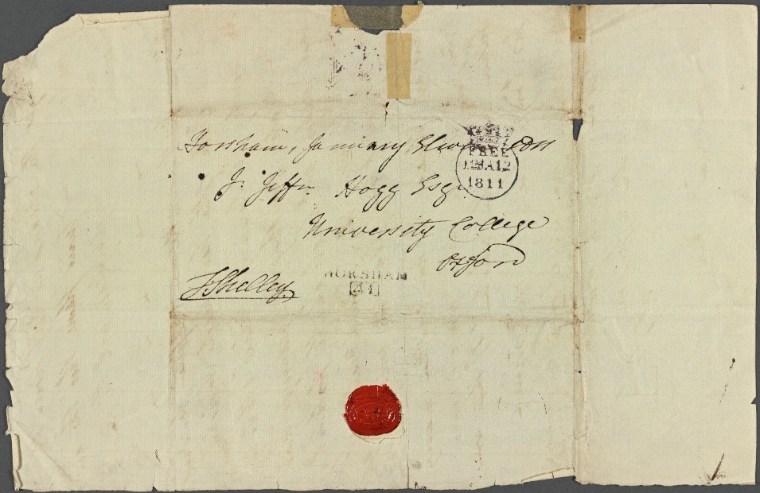 Horsham, January Eleven 1811
FREE
12 JA 12
1811
T: Jeffn Hogg Esqr
University College
Oxford
TShelley
HORSHAM